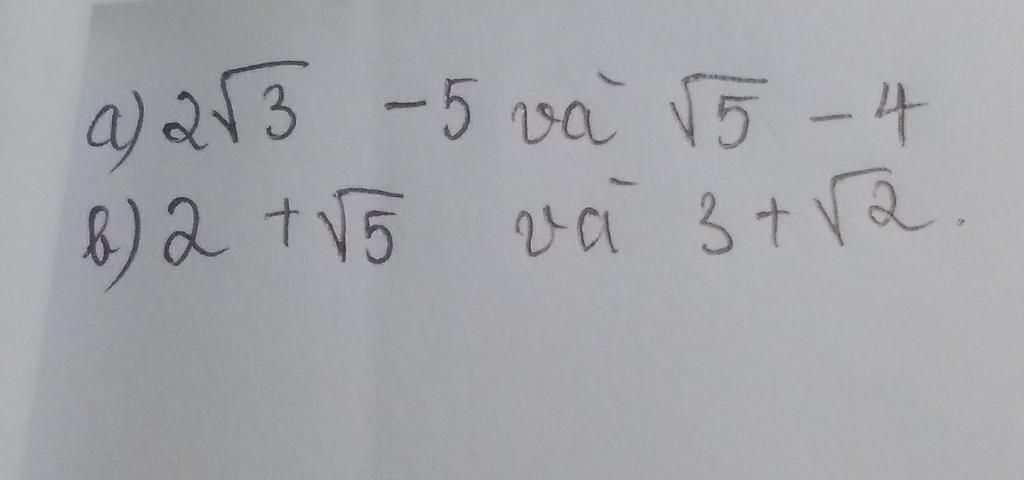 a) 2√3 - 5 và √5 - 4
b) 2 + √5 và 3 + √2.